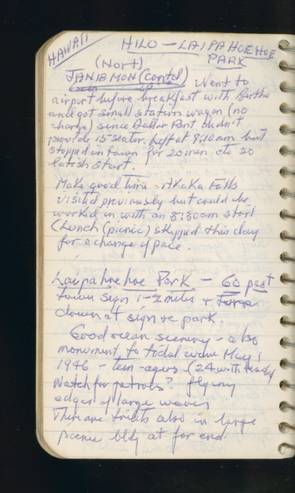 HAWAII
HILO — LAIPAHOEHOE
PARK
(Nort)
JAN 18 MON (contd) Went to
airport before breakfast with
and got small station wagon (no
charge) since Dollar Rent didn't
provide 15 seater. Left at 9:10am but
stopped in town for 20 min. etc so
latish start.
Make good time. Akaka Falls
visited previously but could be
worked in with an 8:30am start
Lunch (picnic) skipped this day
for a change of pace.
Laipahoehoe Park — Go past
town sign 1-2 miles &
down at sign re park.
Good ocean scenery - also
monument to tidal wave May 1
1946 - teen-agers (24 with
Watch for flying
edges of large waves
There are toilets also in large
picnic bldg at far end.